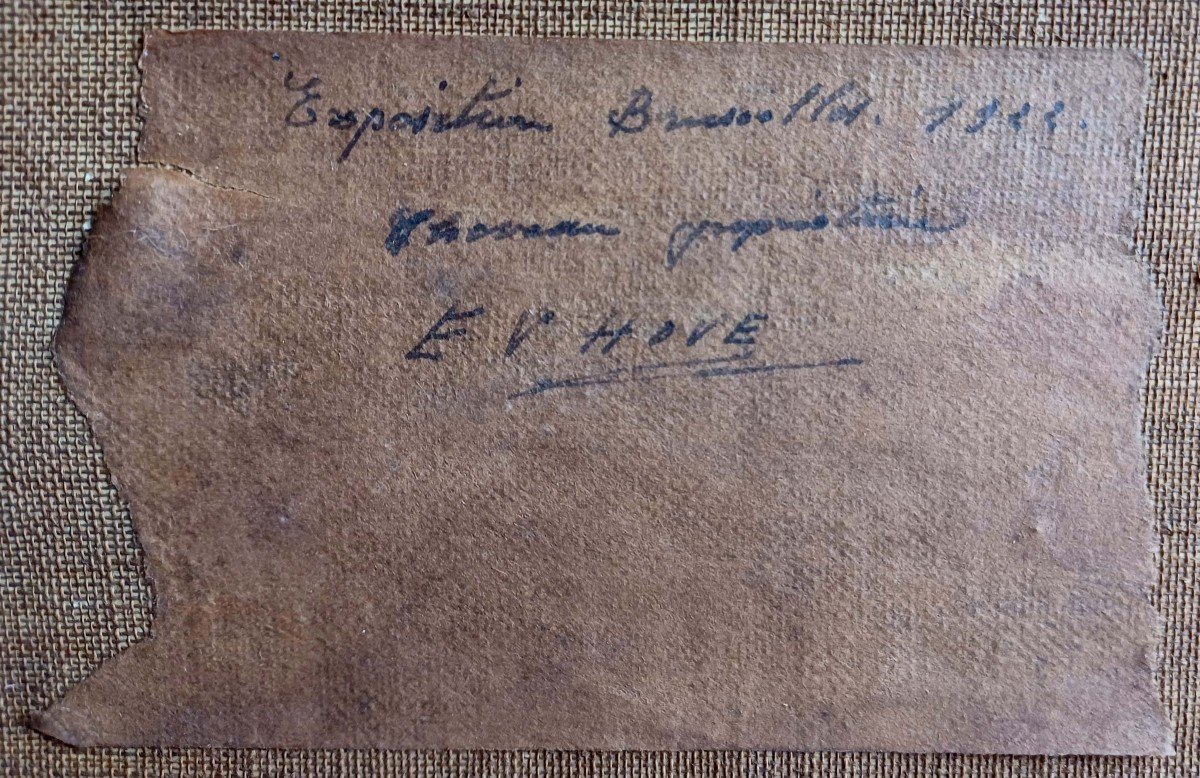 Exposition Bruxelles. 1922.
propriétaire
E V HOVE